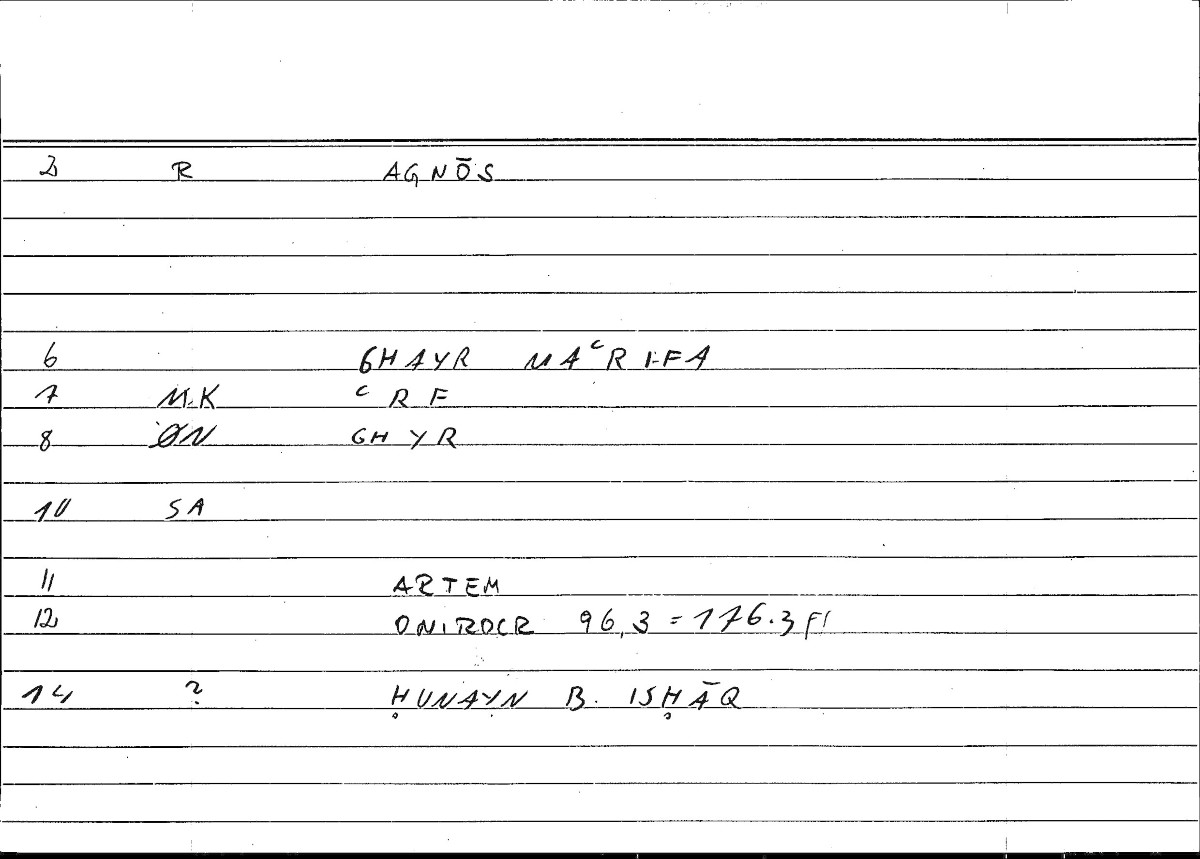 2 R AGNŌS
6 GHAYR MAʿRIFA
7 M.K ʿRF
8 ØN GHYR
10 SA
11 ARTEM
12 ONIROCR 96,3 = 176.3 Fl
14 ? ḤUNAYN B. ISḤĀQ